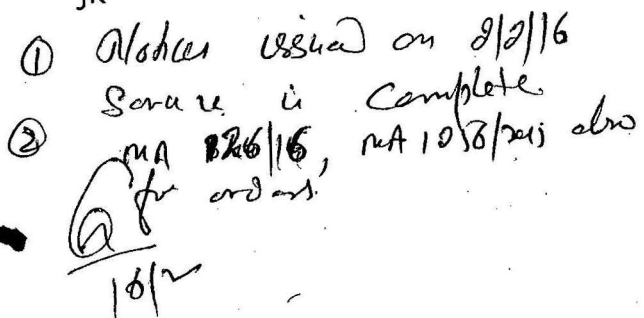 ① Notices issued on 2/2/16
Service is Complete.
② MA 126/16, MA 1056/2015 also
for orders.
16/2